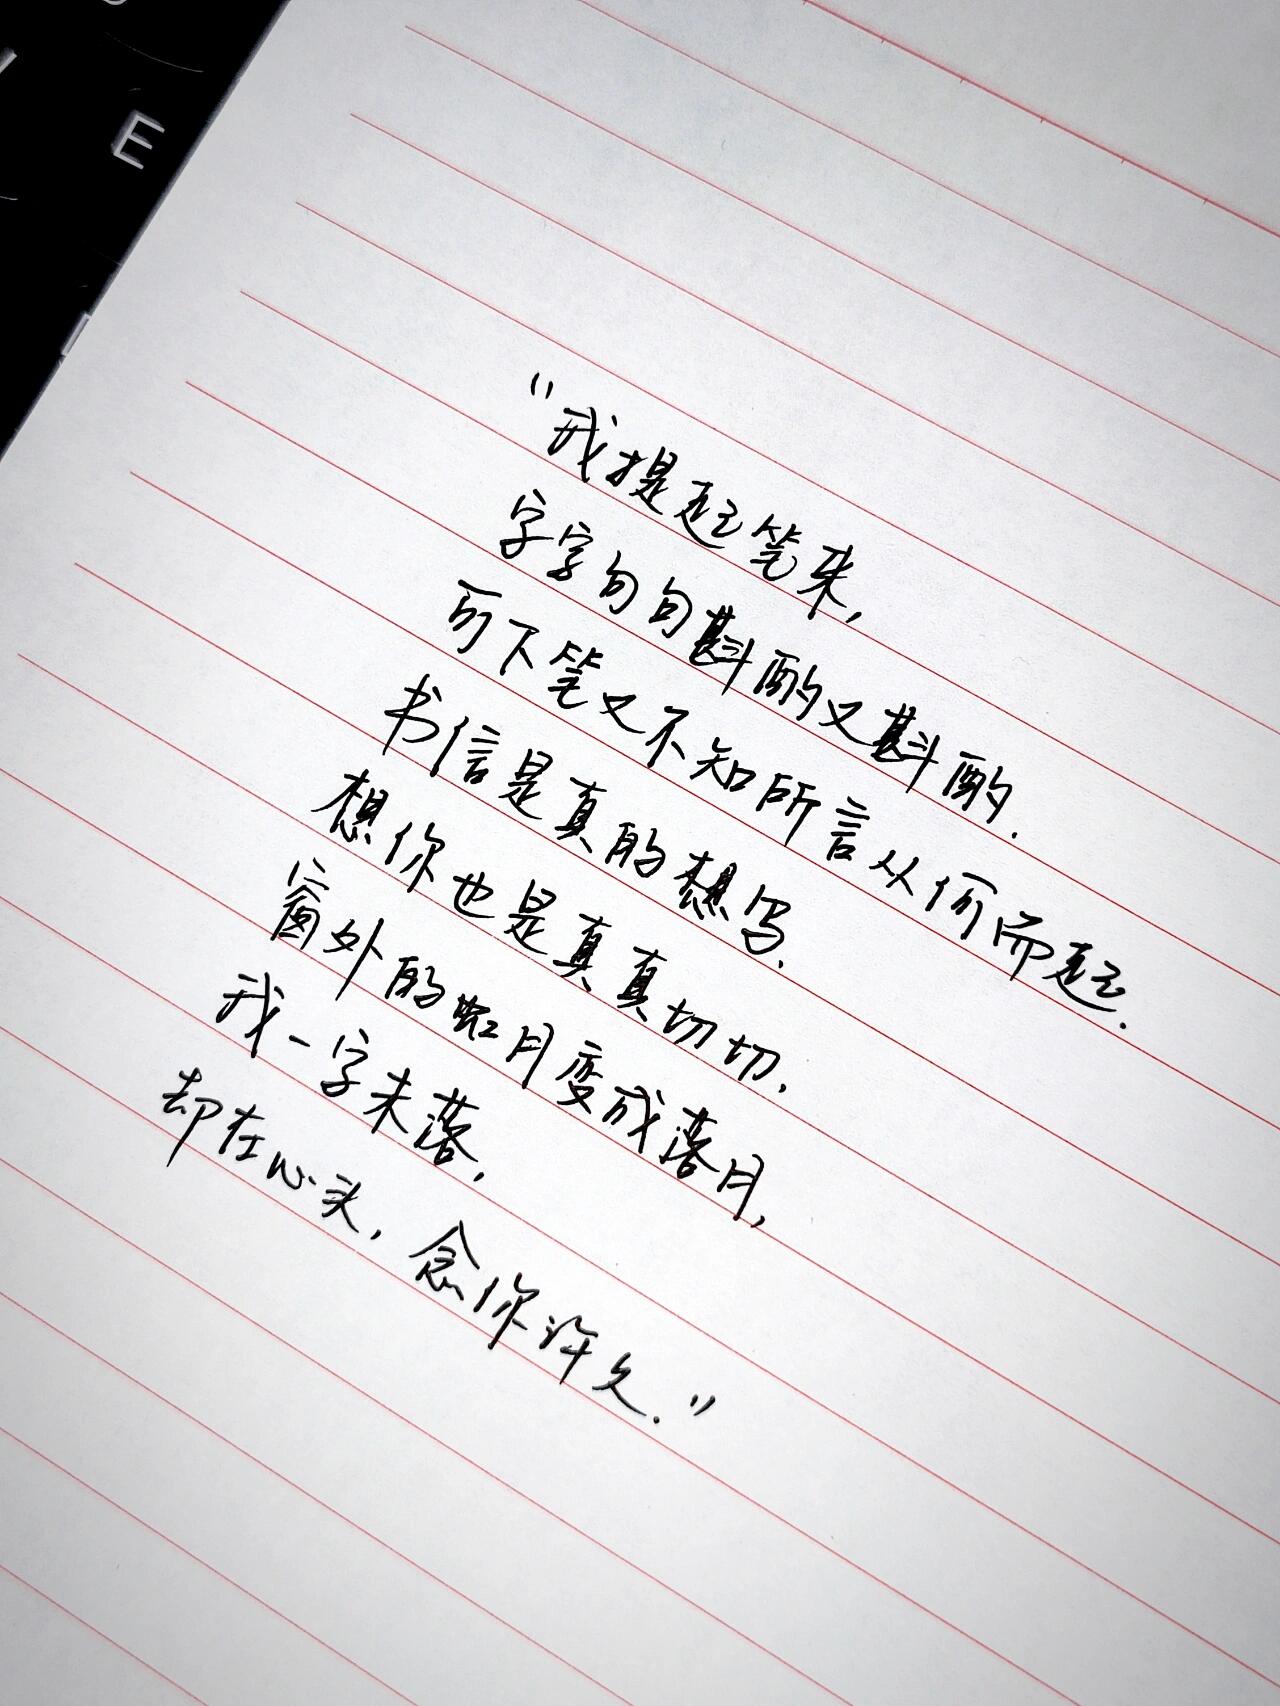 E
“我提起笔来,
字字句句斟酌又斟酌.
可下笔又不知所言从何而起.
书信是真的想写.
想你也是真真切切.
窗外的虹月变成落月,
我一字未落,
却在心头,念你许久.”